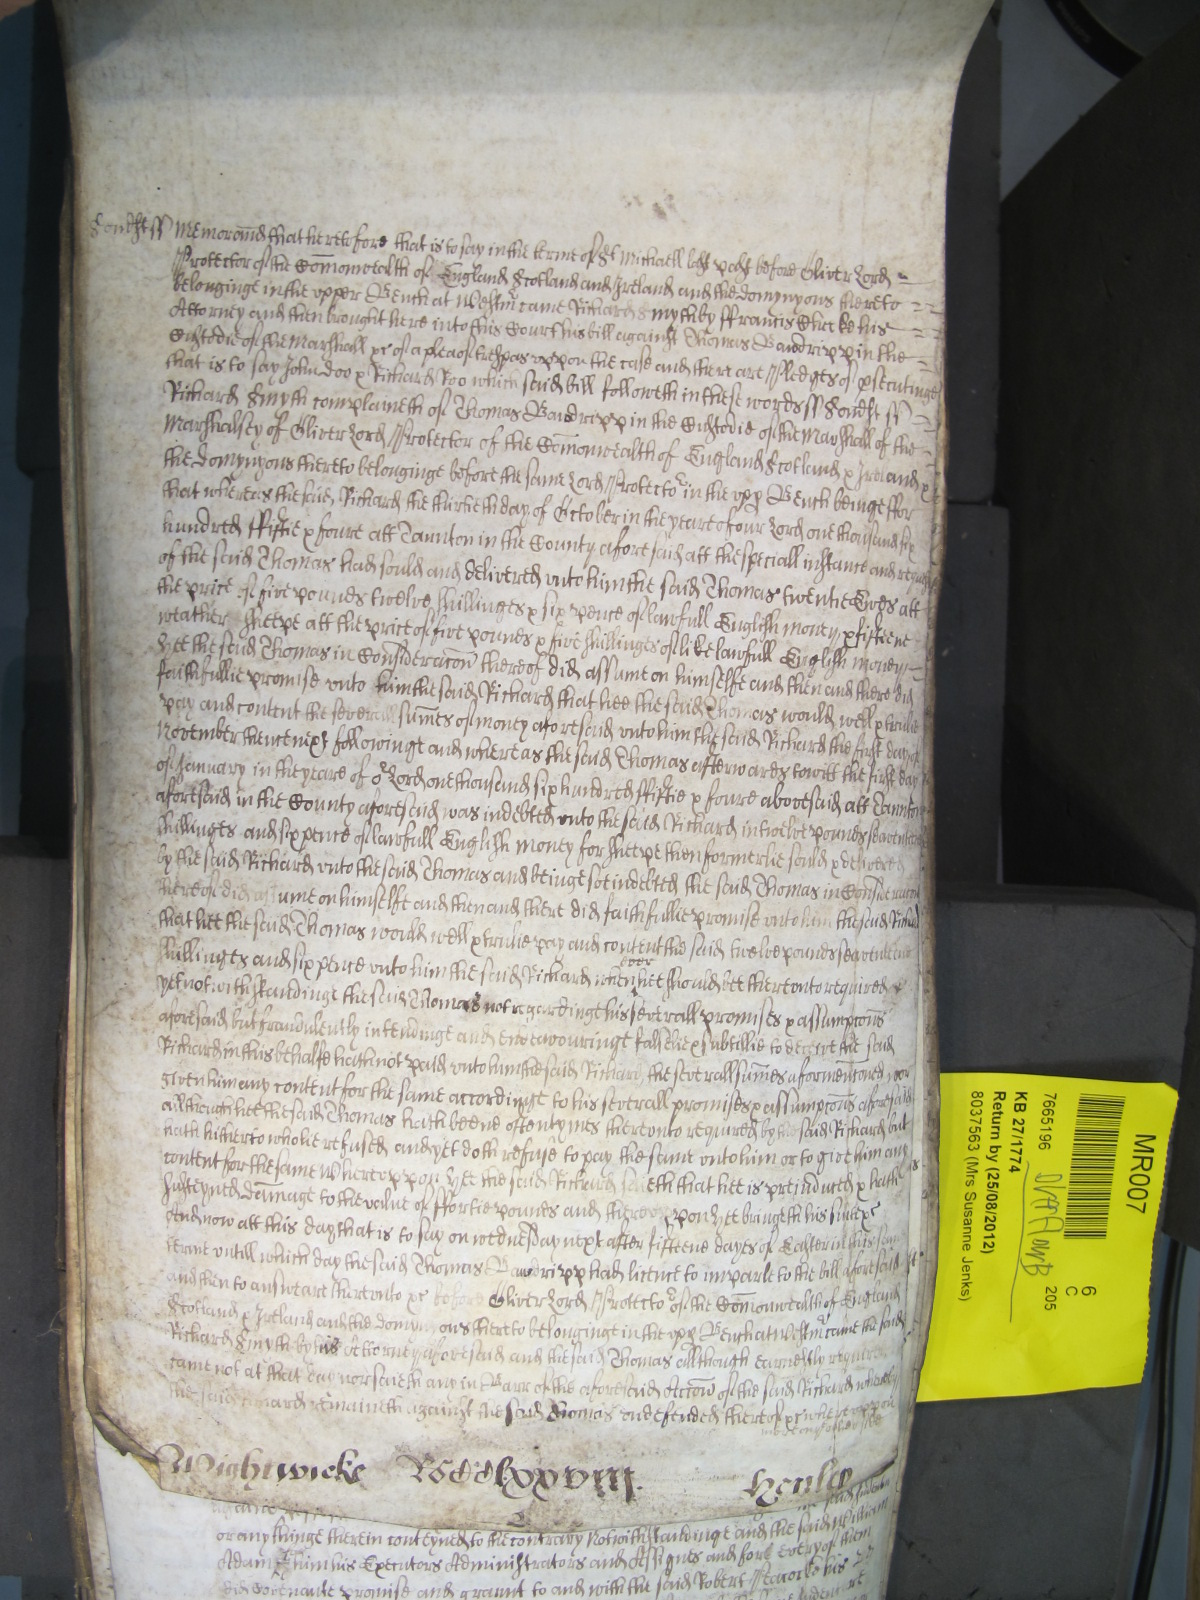 Som~st ss Memorand that heretofore that is to say in the terme of St Michaell last past before Oliver Lord
Protector of the Comonwealth of England Scotland and Ireland and the domynyons thereto
belonginge in the upper Bench at Westmr came Richard Smyth by Francis his
Attorney and then brought here into this Court his bill against Thomas Baudripp in the
Custodie of the Marshall &c of a plea of trespas uppon the case and there are Pledges of psecutinge
that is to say John Doo & Richard Roo which said bill followeth in these words ss Som~st ss
Richard Smyth complaineth of Thomas Baudripp in the Custodie of the Marshall of the
Marshalsey of Oliver Lord Protector of the Comonwealth of England Scotland & Ireland &
the domynyons thereto belonginge before the same Lord Protector in the upp Bench beinge ffor
that whereas the said Richard the thirtieth day of October in the yeare of our Lord one thousand six
hundred ffiftie & foure att Taunton in the County aforesaid att the speciall instance and request
of the said Thomas had sould and delivered unto him the said Thomas twentie Ewes att
the price of five pounds twelve shillinges & six pence of lawfull English money & fifteene
weather sheepe att the price of five pounds & five shillinges of like lawfull English money
hee the said Thomas in Consideracon thereof did assume on himselfe and then and there did
faithfullie promise unto him the said Richard that hee the said Thomas would well & trulie
pay and content the severall sumes of money aforesaid unto him the said Richard the first day of
November then next followinge and whereas the said Thomas afterwards towitt the first day
of January in the yeare of or Lord one thousand six hundred ffiftie & foure abovesaid att Taunton
aforesaid in the County aforesaid was indebted unto the said Richard in twelve pounds seaventeene
shillinges and six pence of lawfull English money for sheepe then formerlie sould & delivered
by the said Richard unto the said Thomas and beinge soe indebted the said Thomas in Consideracon
thereof did assume on himselfe and then and there did faithfullie promise unto him the said Richard
that hee the said Thomas would well & trulie pay and content the said twelve pounds seaventeene
shillinges and six pence unto him the said Richard when ever hee should bee thereunto required &
yet notwithstandinge the said Thomas not regardinge his severall promises & assumpcons
aforesaid but fraudulently intendinge and endeavouringe falselie & subtillie to deceive the said
Richard in this behalfe hath not paid unto him the said Richard the severall sumes aforementoned nor
given him any content for the same accordinge to his severall promises & assumpcons aforesaid
although hee the said Thomas hath beene oftentymes thereunto required by the said Richard but
hath hitherto wholie refused and yet doth refuse to pay the same unto him or to give him any
content for the same Whereuppon hee the said Richard saieth that hee is preiudiced & hath
susteyned damage to the value of ffortie pounds and thereuppon hee bringeth his suite &c
And now att this day that is to say on wednesday next after fifteene dayes of Easter in this same
terme untill which day the said Thomas Baudripp had licence to imparle to the bill aforesaid
and then to answeare thereunto &c before Oliver Lord Protector of the Comonwealth of England
Scotland & Ireland and the domynyons thereto belonginge in the upp Bench at Westmr came the said
Richard Smyth by his Attorney aforesaid and the said Thomas although earnestly required
came not at that day nor saieth any in Barr of the aforesaid Accon of the said Richard whereby
the said Richard remaineth against the said Thomas undefended thereof &c whereuppon
Wightwicke Henley
or any thinge therein conteyned to the contrary Notwithstandinge and the said William
Adam his Executors Administrators and Assignes and for every of them
did Covenante promise and graunt to and with the said Robert his
MR007
6
C
205
7665196
KB 27/1774
Return by (25/08/2012)
8037563 (Mrs Susanne Jenks)